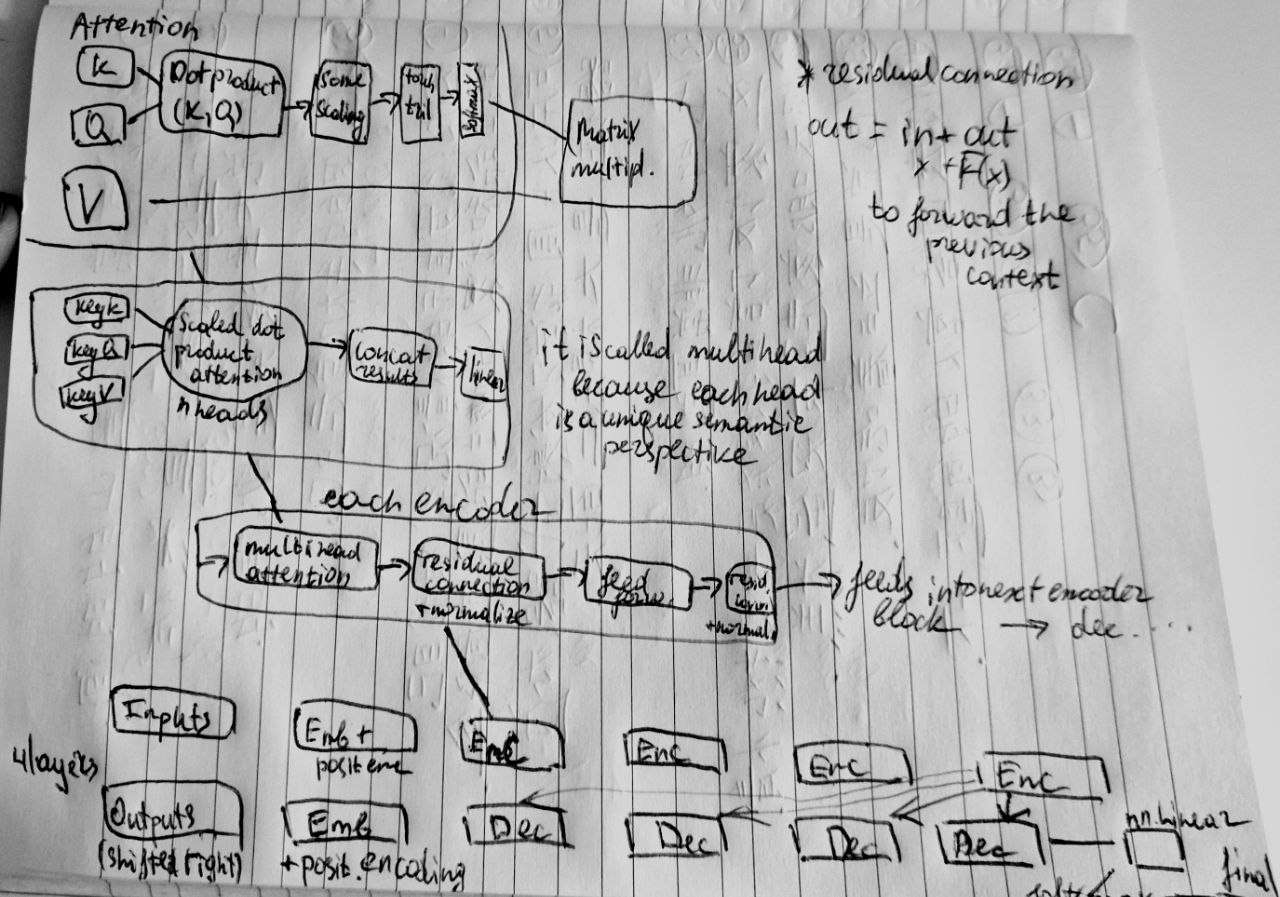 Attention
K
Q
V
Dot product
(K, Q)
some
scaling
torch
tril
softmax
Matrix
multipl.
* residual connection
out = in + out
x + F(x)
to forward the
previous
context
key K
key Q
key V
Scaled dot
product
attention
n heads
concat
results
linear
it is called multihead
because each head
is a unique semantic
perspective
each encoder
multihead
attention
residual
connection
+ normalize
feed
forw.
resid.
conn.
+ normal.
feeds into next encoder
block → dec. ....
4 layers
Inputs
Emb +
posit enc
Enc
Enc
Enc
Enc
Outputs
(shifted right)
Emb
+ posit. encoding
Dec
Dec
Dec
Dec
nn.Linear
final